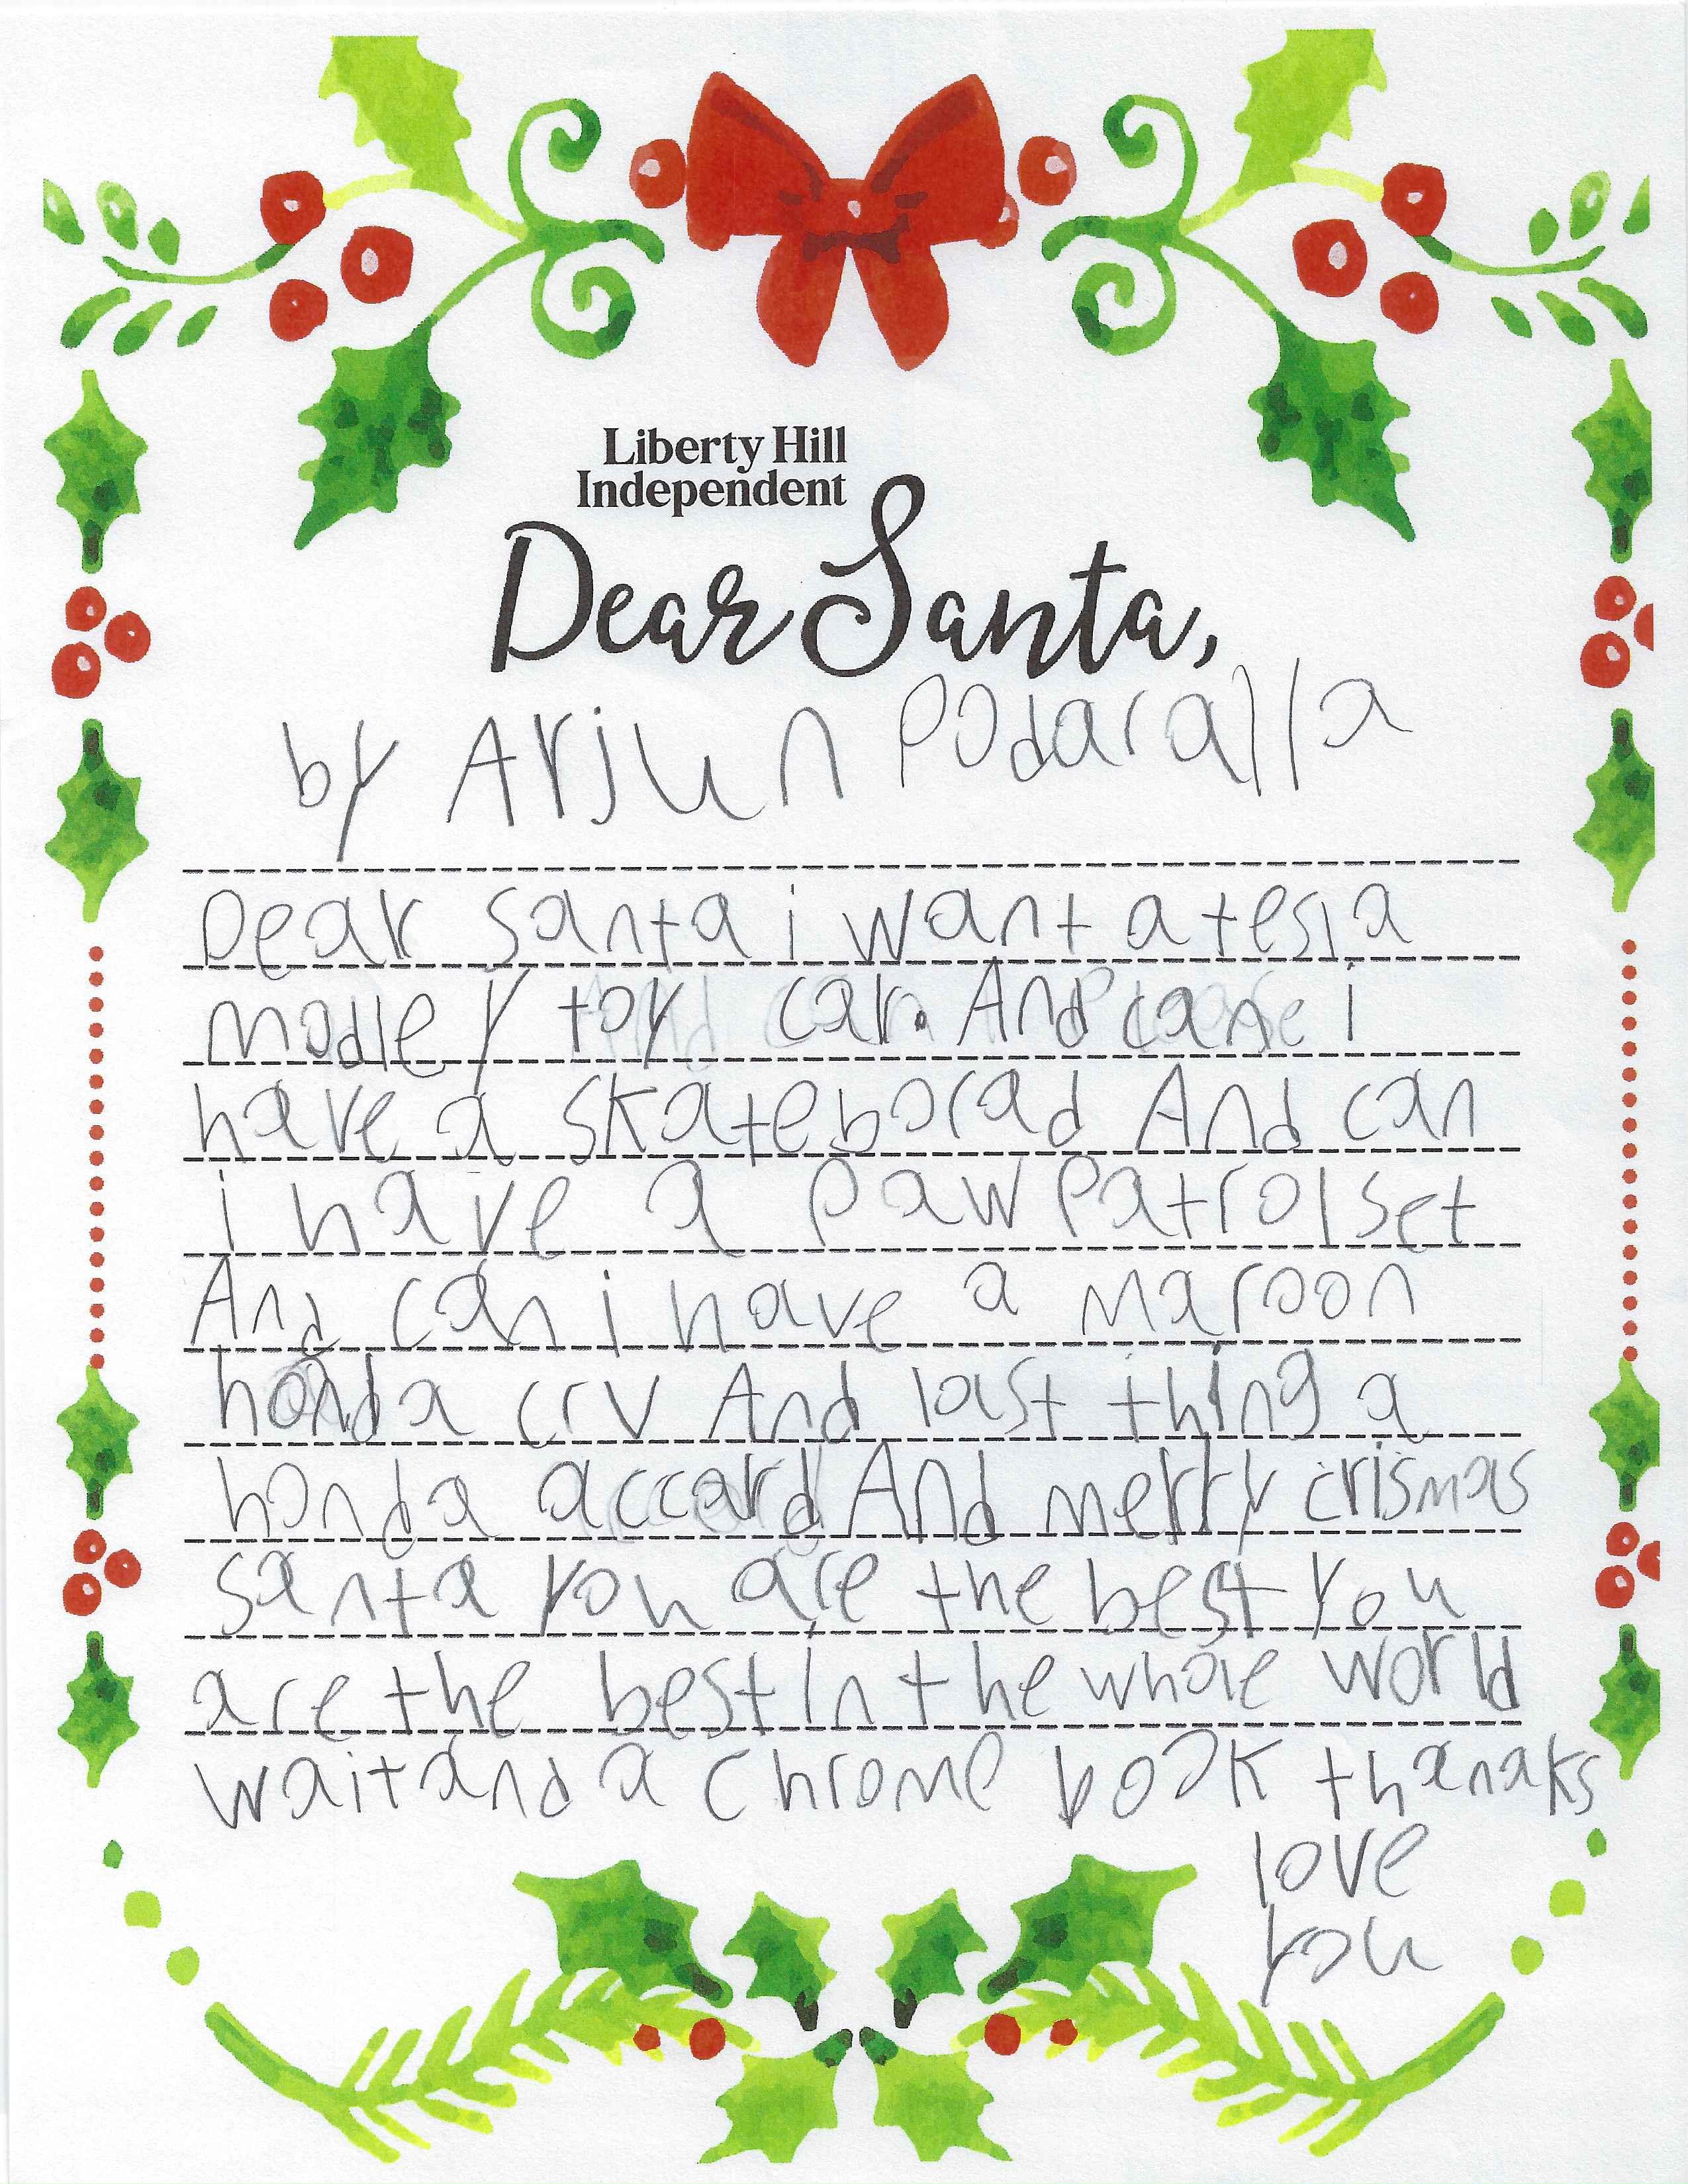 Liberty Hill
Independent
Dear Santa,
by Arjun Podaralla
Dear santa i want a tesla
modle y toy car. And can i
have a skateborad And can
i have a paw patrol set
And can i have a maroon
honda crv And last thing a
honda accard And merry crismas
santa you are the best you
are the best in the whole world
wait and a chrome book thanaks
love
you